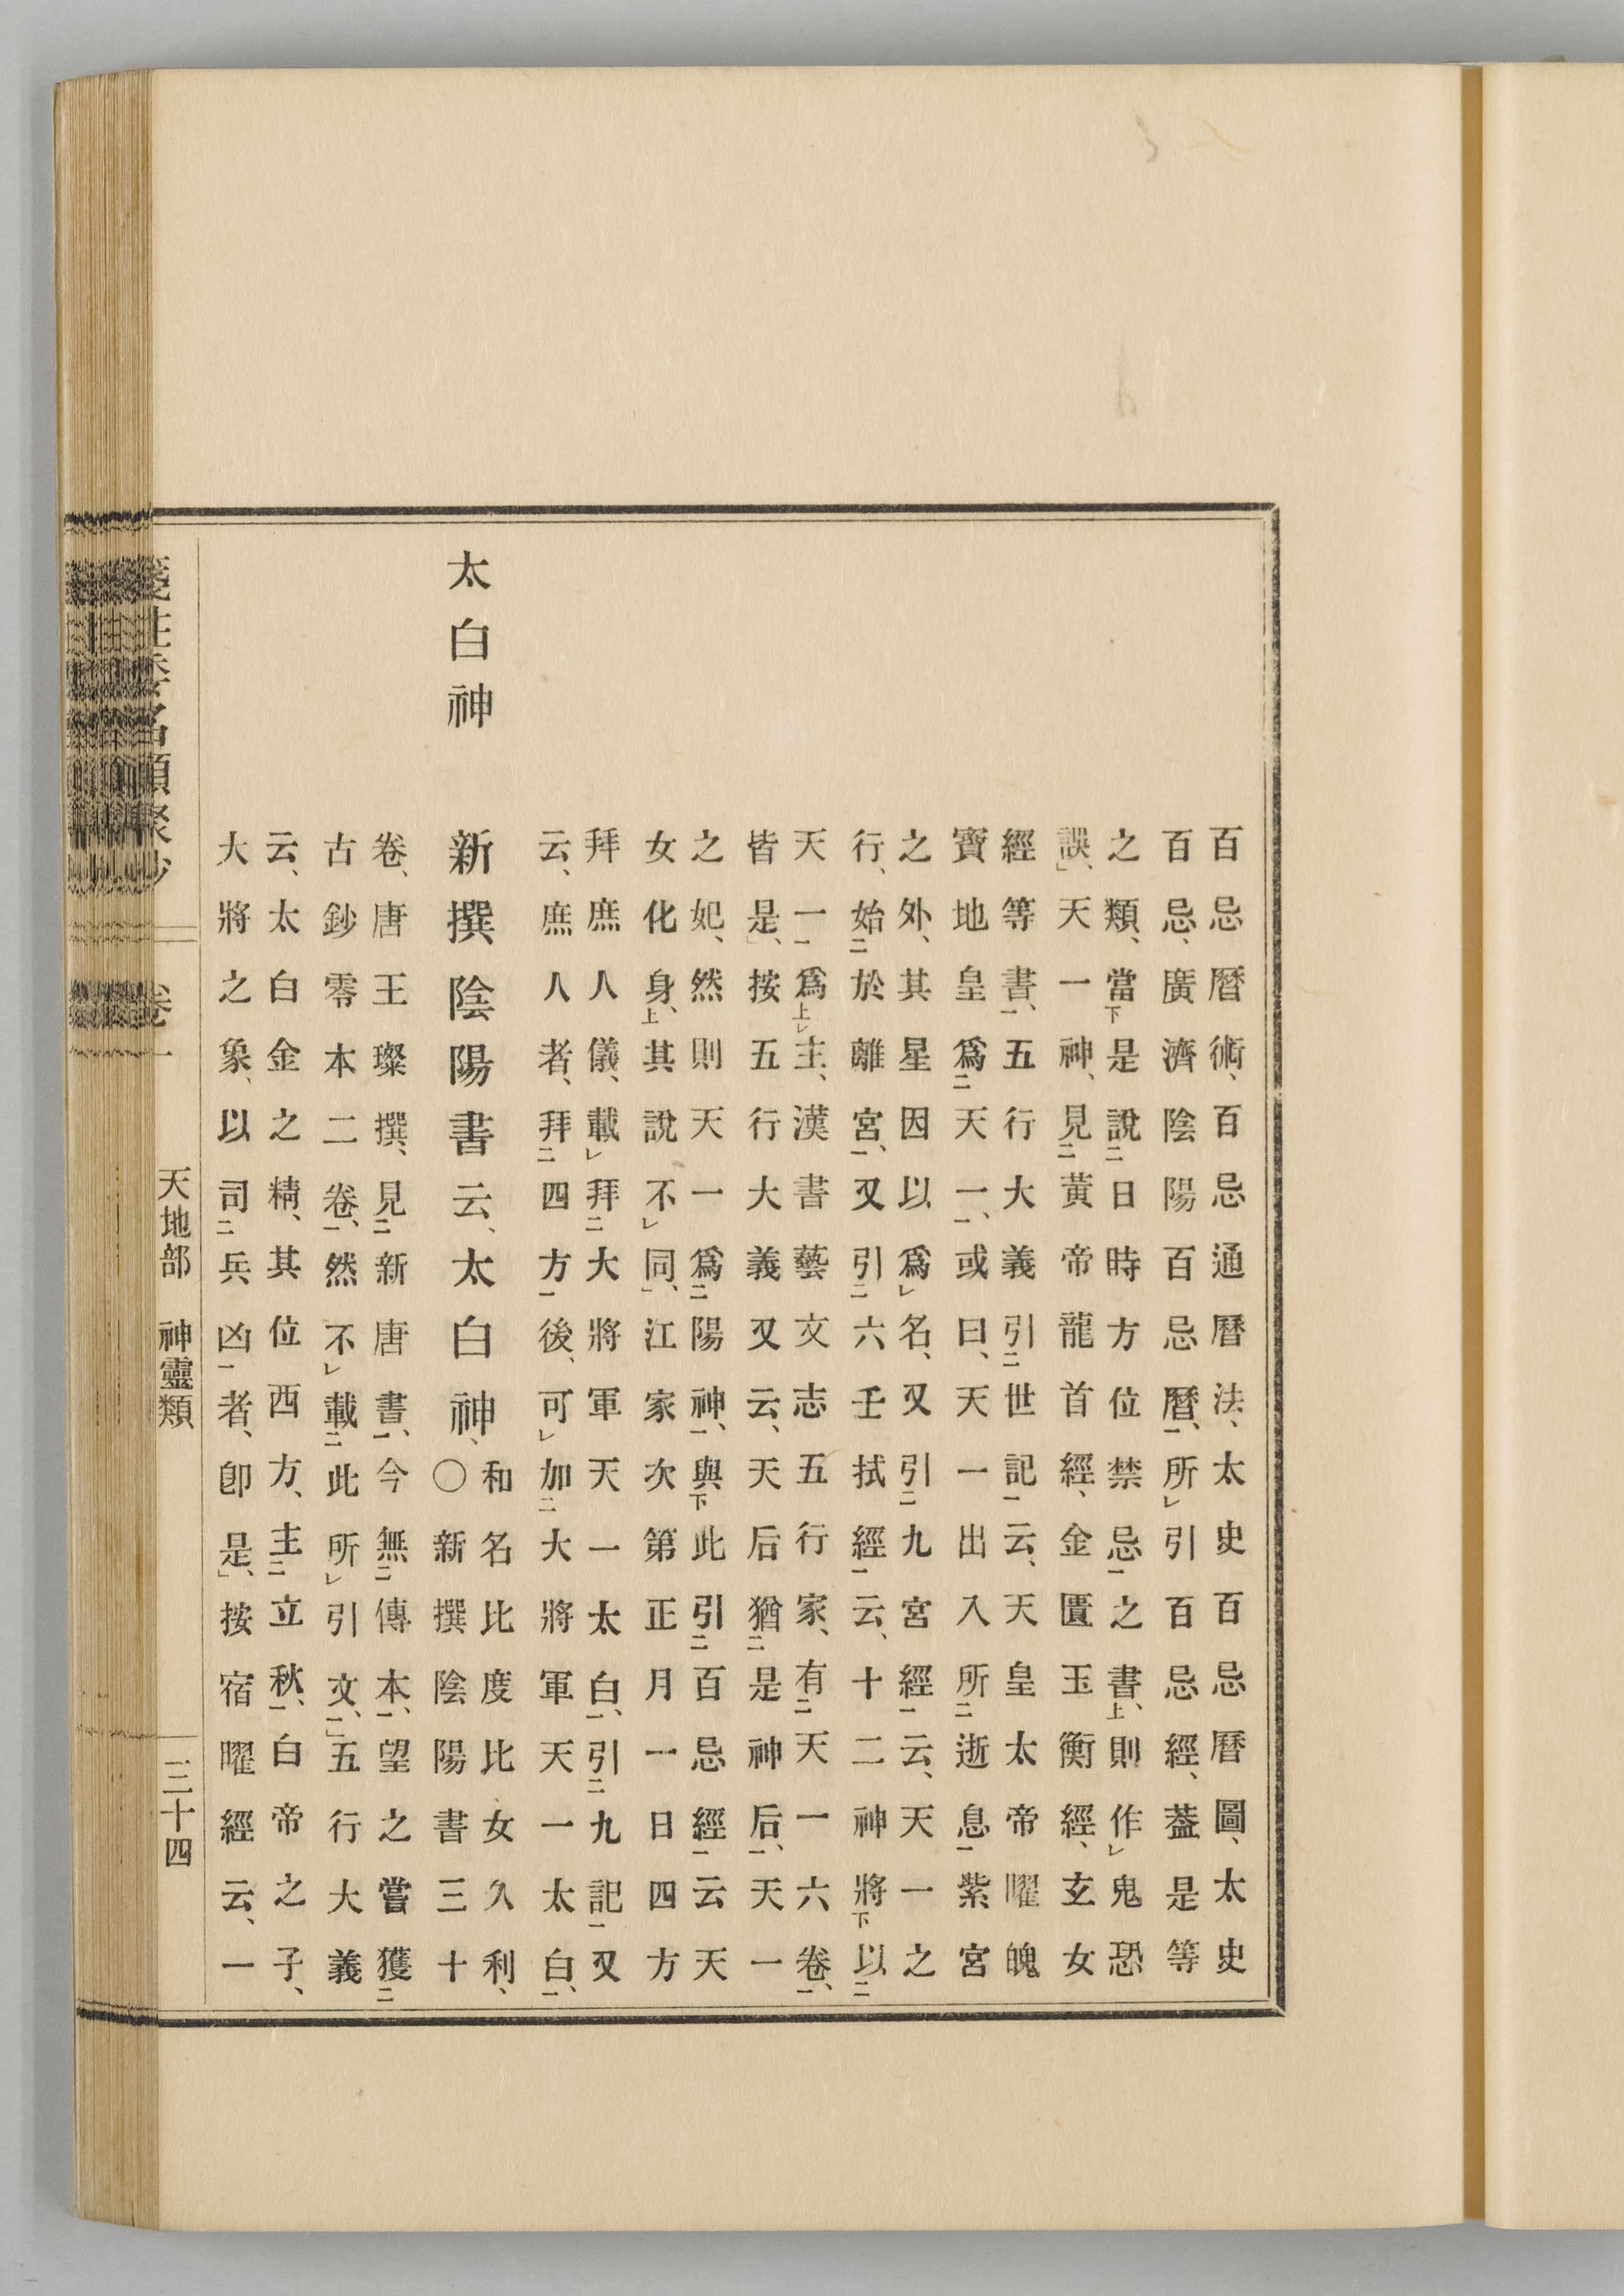 百忌曆術、百忌通曆法、太史百忌曆圖、太史
百忌、廣濟陰陽百忌曆、所引百忌經、蓋是等
之類、當是說日時方位禁忌之書、則作鬼恐
誤、天一神、見黃帝龍首經、金匱玉衡經、玄女
經等書、五行大義引世記云、天皇太帝曜魄
寶地皇爲天一、或曰、天一出入所逝息紫宮
之外、其星因以爲名、又引九宮經云、天一之
行、始於離宮、又引六壬拭經云、十二神將以
天一爲主、漢書藝文志五行家、有天一六卷、
皆是、按五行大義又云、天后猶是神后、天一
之妃、然則天一爲陽神、與此引百忌經云天
女化身、其說不同、江家次第正月一日四方
拜庶人儀、載拜大將軍天一太白、引九記又
云、庶人者、拜四方後、可加大將軍天一太白、
太白神
新撰陰陽書云、太白神、
和名比度比女久利、
〇新撰陰陽書三十
卷、唐王璨撰、見新唐書、今無傳本、望之嘗獲
古鈔零本二卷、然不載此所引文、五行大義
云、太白金之精、其位西方、主立秋、白帝之子、
大將之象、以司兵凶者、卽是、按宿曜經云、一
箋注倭名類聚抄 卷一 天地部 神靈類 三十四